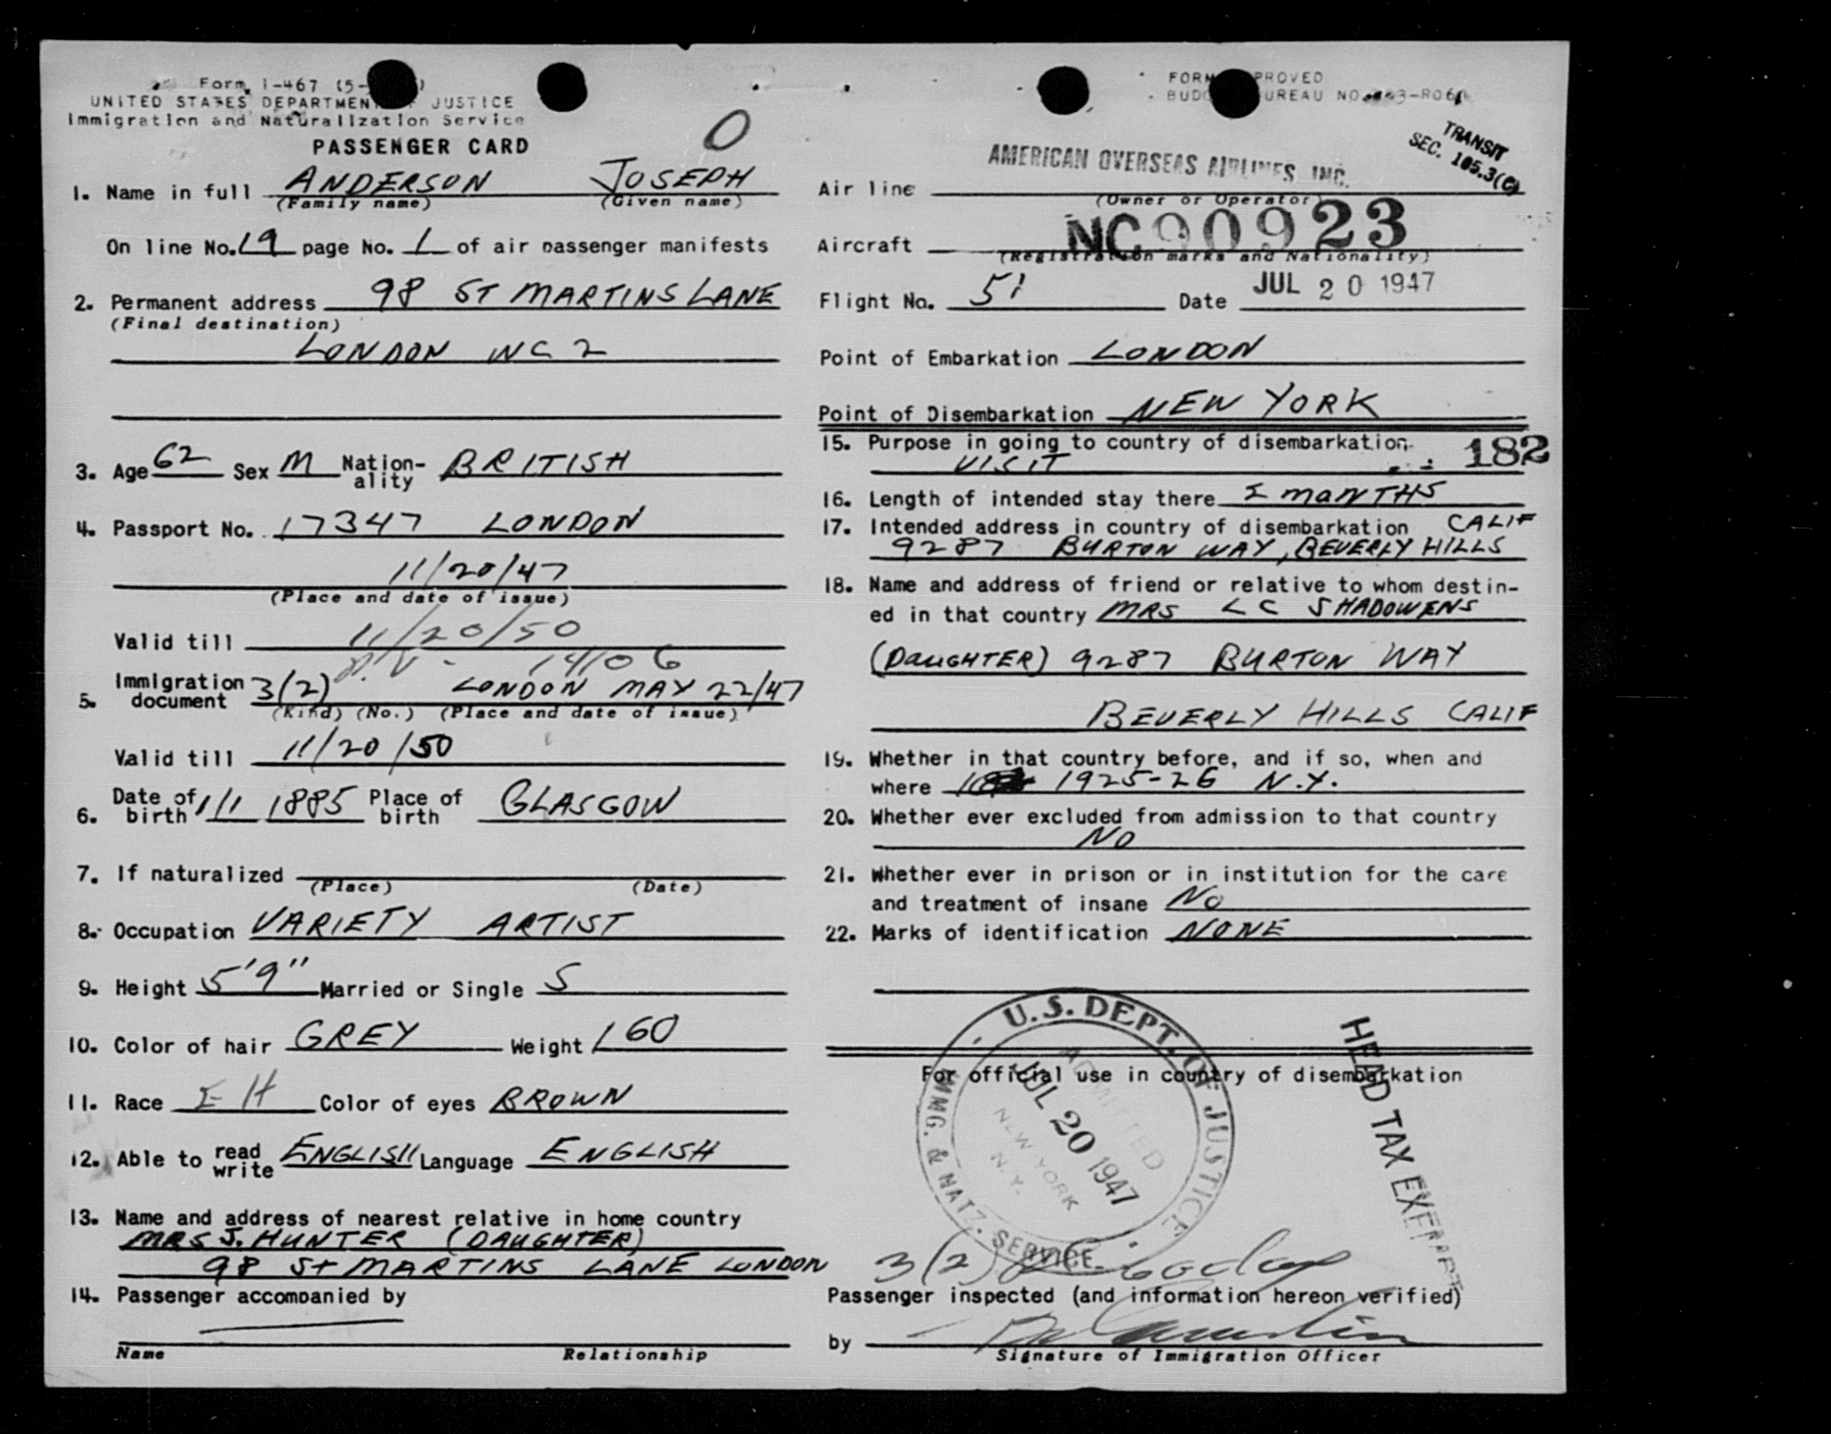 Form I-467 (5-
UNITED STATES DEPARTMENT OF JUSTICE
Immigration and Naturalization Service
PASSENGER CARD
O
1. Name in full ANDERSON JOSEPH
(Family name) (Given name)
On line No. 19 page No. 1 of air passenger manifests
2. Permanent address 98 ST MARTINS LANE
(Final destination)
LONDON WC 2
3. Age 62 Sex M Nation-ality BRITISH
4. Passport No. 17347 LONDON
11/20/47
(Place and date of issue)
Valid till 11/20/50
P.V. - 14106
5. Immigration document 3(2) LONDON MAY 22/47
(Kind) (No.) (Place and date of issue)
Valid till 11/20/50
6. Date of birth 1/1 1885 Place of birth GLASGOW
7. If naturalized
(Place) (Date)
8. Occupation VARIETY ARTIST
9. Height 5'9" Married or Single S
10. Color of hair GREY Weight 160
11. Race Color of eyes BROWN
12. Able to read write ENGLISH Language ENGLISH
13. Name and address of nearest relative in home country
MRS J. HUNTER (DAUGHTER)
98 St MARTINS LANE LONDON
14. Passenger accompanied by
Name Relationship
FORM APPROVED
BUDGET BUREAU NO.
TRANSIT
SEC. 105.3(C)
AMERICAN OVERSEAS AIRLINES, INC.
Air line
(Owner or Operator)
Aircraft NC90923
(Registration marks and Nationality)
Flight No. 51 Date JUL 20 1947
Point of Embarkation LONDON
Point of Disembarkation NEW YORK
15. Purpose in going to country of disembarkation
VISIT 182
16. Length of intended stay there MONTHS
17. Intended address in country of disembarkation CALIF
9287 BURTON WAY, BEVERLY HILLS
18. Name and address of friend or relative to whom destin-
ed in that country MRS L C SHADOWENS
(DAUGHTER) 9287 BURTON WAY
BEVERLY HILLS CALIF
19. Whether in that country before, and if so, when and
where 1925-26 N.Y.
20. Whether ever excluded from admission to that country
NO
21. Whether ever in prison or in institution for the care
and treatment of insane No
22. Marks of identification NONE
For official use in country of disembarkation
U.S. DEPT. OF JUSTICE
IMMG. & NATZ. SERVICE
ADMITTED
JUL 20 1947
NEW YORK
N.Y.
HEAD TAX EXEMPT
3(2)
Passenger inspected (and information hereon verified)
by
Signature of Immigration Officer